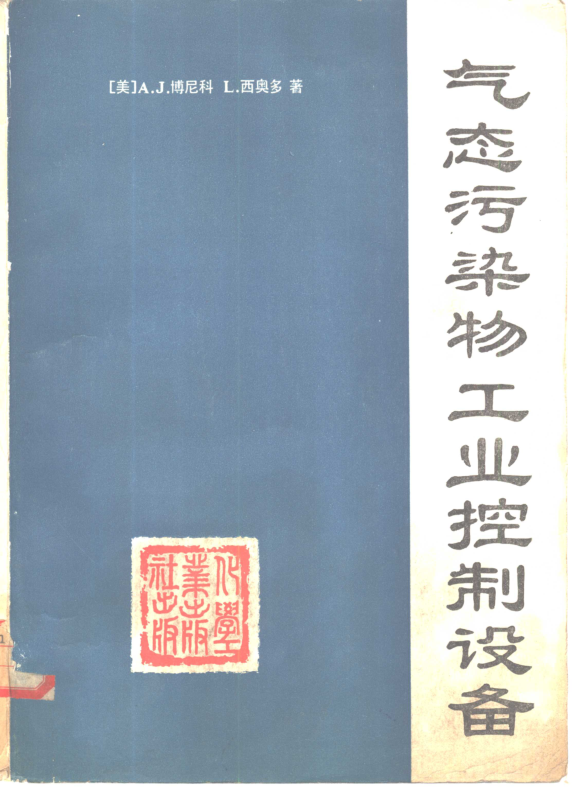 [美]A.J.博尼科 L.西奥多 著
气态污染物工业控制设备
化學工
業出版
社出版